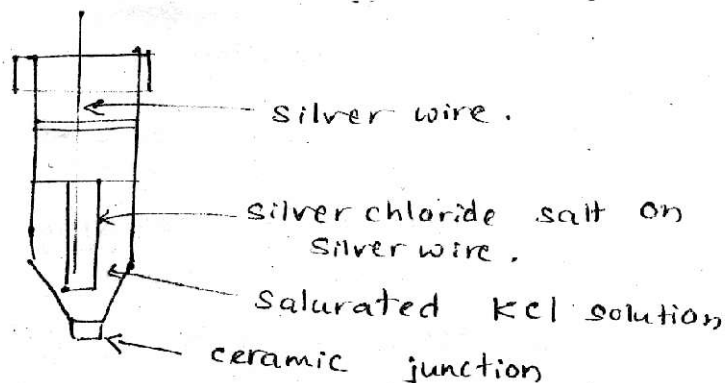 silver wire.
silver chloride salt on
silver wire.
salurated KCl solution
ceramic junction